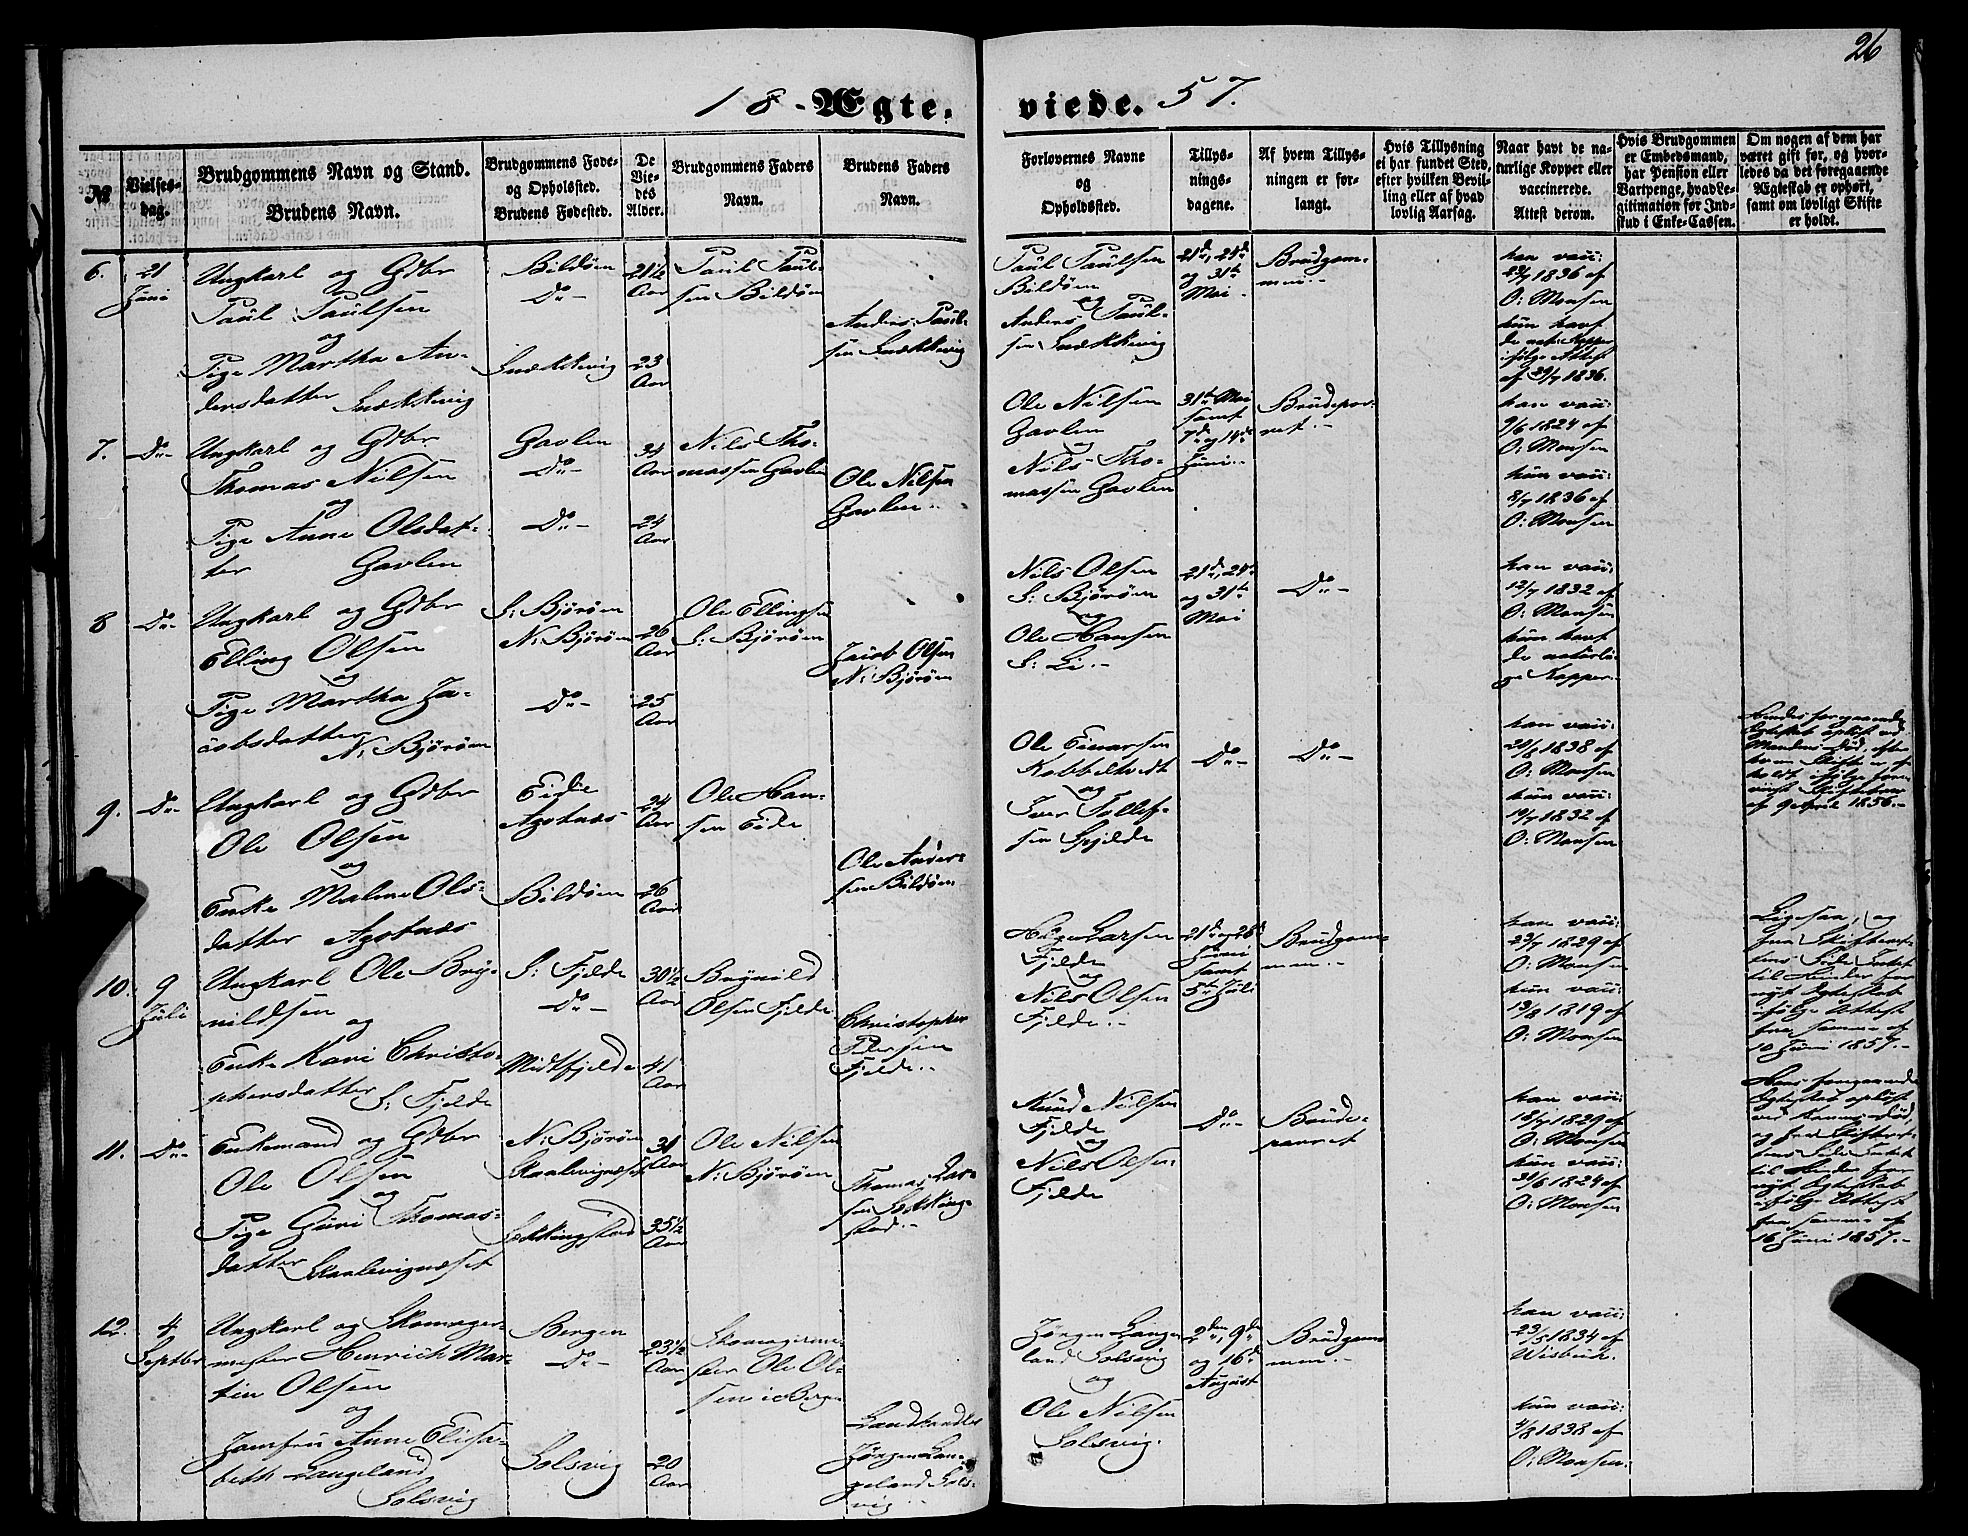 26
18 - Ægte-
viede. 57.
№
Vielses-
dag.
Brudgommens Navn og Stand.
Brudens Navn.
Brudgommens Føde-
og Opholdssted.
Brudens Fødested.
De
Vie-
des
Alder.
Brudgommens Faders
Navn.
Brudens Faders
Navn.
Forlovernes Navne
og
Opholdssted.
Tillys-
nings-
dagene.
Af hvem Tillys-
ningen er for-
langt.
Hvis Tillysning
ei har fundet Sted,
efter hvilken Bevil-
ling eller af hvad
lovlig Aarsag.
Naar havt de na-
turlige Kopper eller
vaccinerede.
Attest derom.
Hvis Brudgommen
er Embedsmand,
har Pension eller
Vartpenge, hvad Le-
gitimation for Ind-
skud i Enke-Cassen.
Om nogen af dem har
været gift før, og hvor-
ledes da det foregaaende
Ægteskab er ophørt,
samt om lovligt Skifte
er holdt.
6.
21
Juni
Ungkarl og Gdbr
Paul Paulsen
og
Pige Martha An-
dersdatter Snekkevig
Bildøen
Do -
Snekkevig
21½
Aar
23
Aar
Paul Paul-
sen Bildøen
Anders Paul-
sen Snekkevig
Paul Paulsen
Bildøen
og
Anders Paul-
sen Snekkevig
21de, 24de
og 31te
Mai
Brudgom-
men.-
han vacc:
23/7 1836 af
O: Monsen
hun havt
de nat: Kopper
ifølge Attest
af 29/7 1836.
7.
Do -
Ungkarl og Gdbr
Thomas Nilsen
og
Pige Anne Olsdat-
ter Gavlen
Gavlen
Do -
Do -
34
Aar
24
Aar
Nils Tho-
massen Gavlen
Ole Nilsen
Gavlen.-
Ole Nilsen
Gavlen
og
Nils Tho-
massen Gavlen
31te Mai
samt
7de og 14de
Juni.-
Brudepar-
ret.-
han vacc:
9/6 1824 af
O: Monsen
hun vacc:
8/7 1836 af
O: Monsen
8
Do -
Ungkarl og Gdbr
Elling Olsen
og
Pige Martha Ja-
cobsdatter
N: Bjørøen
S: Bjørøen
N: Bjørøen
Do -
26
Aar
25
Aar
Ole Ellingsen
S: Bjørøen
Jacob Olsen
N: Bjørøen
Nils Olsen
S: Bjørøen
og
Ole Hansen
S: Li.-
21de, 24de
og 31te
Mai
Do -
han vacc:
12/7 1832 af
O: Monsen
hun havt
de naturli-
ge Kopper.
9.
Do -
Ungkarl og Gdbr
Ole Olsen
og
Enke Malene Ols-
datter Agotnæs
Eide
Agotnæs
Bildøen
24
Aar
26
Aar
Ole Han-
sen Eide
Ole Ander-
sen Bildøen
Ole Einarsen
Kobbeltvedt
og
Iver Tollef-
sen Spjelde
Do -
Do -
han vacc:
O: Monsen
hun vacc:
19/7 1832 af
O: Monsen
Hendes foregaaende
Ægteskab opløst ved
Mandens Død, efter
hvem Skifte er af-
holdt ifølge fore-
viist Skiftebrev
af 9 April 1856.-
10.
9
Juli
Ungkarl Ole Bry-
nildsen
og
Enke Kari Christo-
phersdatter
S: Fjelde
S: Fjelde
Do -
Midtfjelde
30½
Aar
41
Aar
Brynild
Olsen Fjelde
Christopher
Pedersen
Fjelde.-
Larsen
Fjelde
og
Nils Olsen
Fjelde.-
21de og 28de
Juni
samt
5te Juli
Brudgom-
men.-
han vacc:
23/7 1829 af
O: Monsen
hun vacc:
13/8 1819 af
O: Monsen
Ligesaa, og
fra Skifteret-
tens Side Intet
til Hinder for
nyt Ægteskab
ifølge Attest
fra samme af
10 Juni 1857.-
11.
Do -
Enkemand og Gdbr
Ole Olsen
og
Pige Guri Thomas-
datter Skaalevignæset
N: Bjørøen
Skaalevignæset
Sekkingstad
31
Aar
35½
Aar
Ole Nilsen
N: Bjørøen
Thomas Lar-
sen Sekking-
stad.-
Knud Nilsen
Fjelde
og
Nils Olsen
Fjelde
Do -
Brude-
parret
han vacc:
18/7 1829 af
O: Monsen
hun vacc:
24/6 1824 af
O: Monsen
Hans foregaaende
Ægteskab opløst
ved Konens Død,
og fra Skifteret-
tens Side Intet
til Hinder for
nyt Ægteskab
ifølge Attest
fra samme af
16 Juni 1857.-
12.
4
Septbr
Ungkarl og Skomager-
mester Henrich Mar-
tin Olsen
og
Jomfru Anne Elisa-
beth Langeland
Solsvig
Bergen
Do -
Solsvig
23½
Aar
20
Aar
Skomagerme-
ster Ole Ol-
sen i Bergen
Landhandler
Jørgen Lan-
geland Sols-
vig
Jørgen Lange-
land Solsvig
og
Ole Nilsen
Solsvig.
2den, 9de
og 16de
August
Brudgom-
men.-
han vacc:
23/5 1834 af
Wisbech.
hun vacc:
4/8 1838 af
O: Monsen.